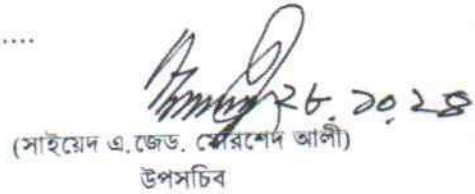 ....
২৮.১০.২৪
(সাইয়েদ এ.জেড. মোরশেদ আলী)
উপসচিব